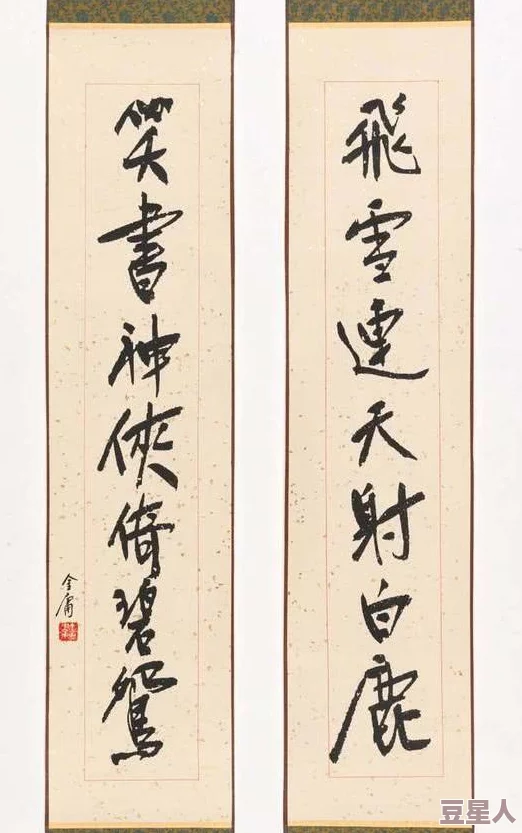 飛雪連天射白鹿
笑書神俠倚碧鴛
金庸
豆星人